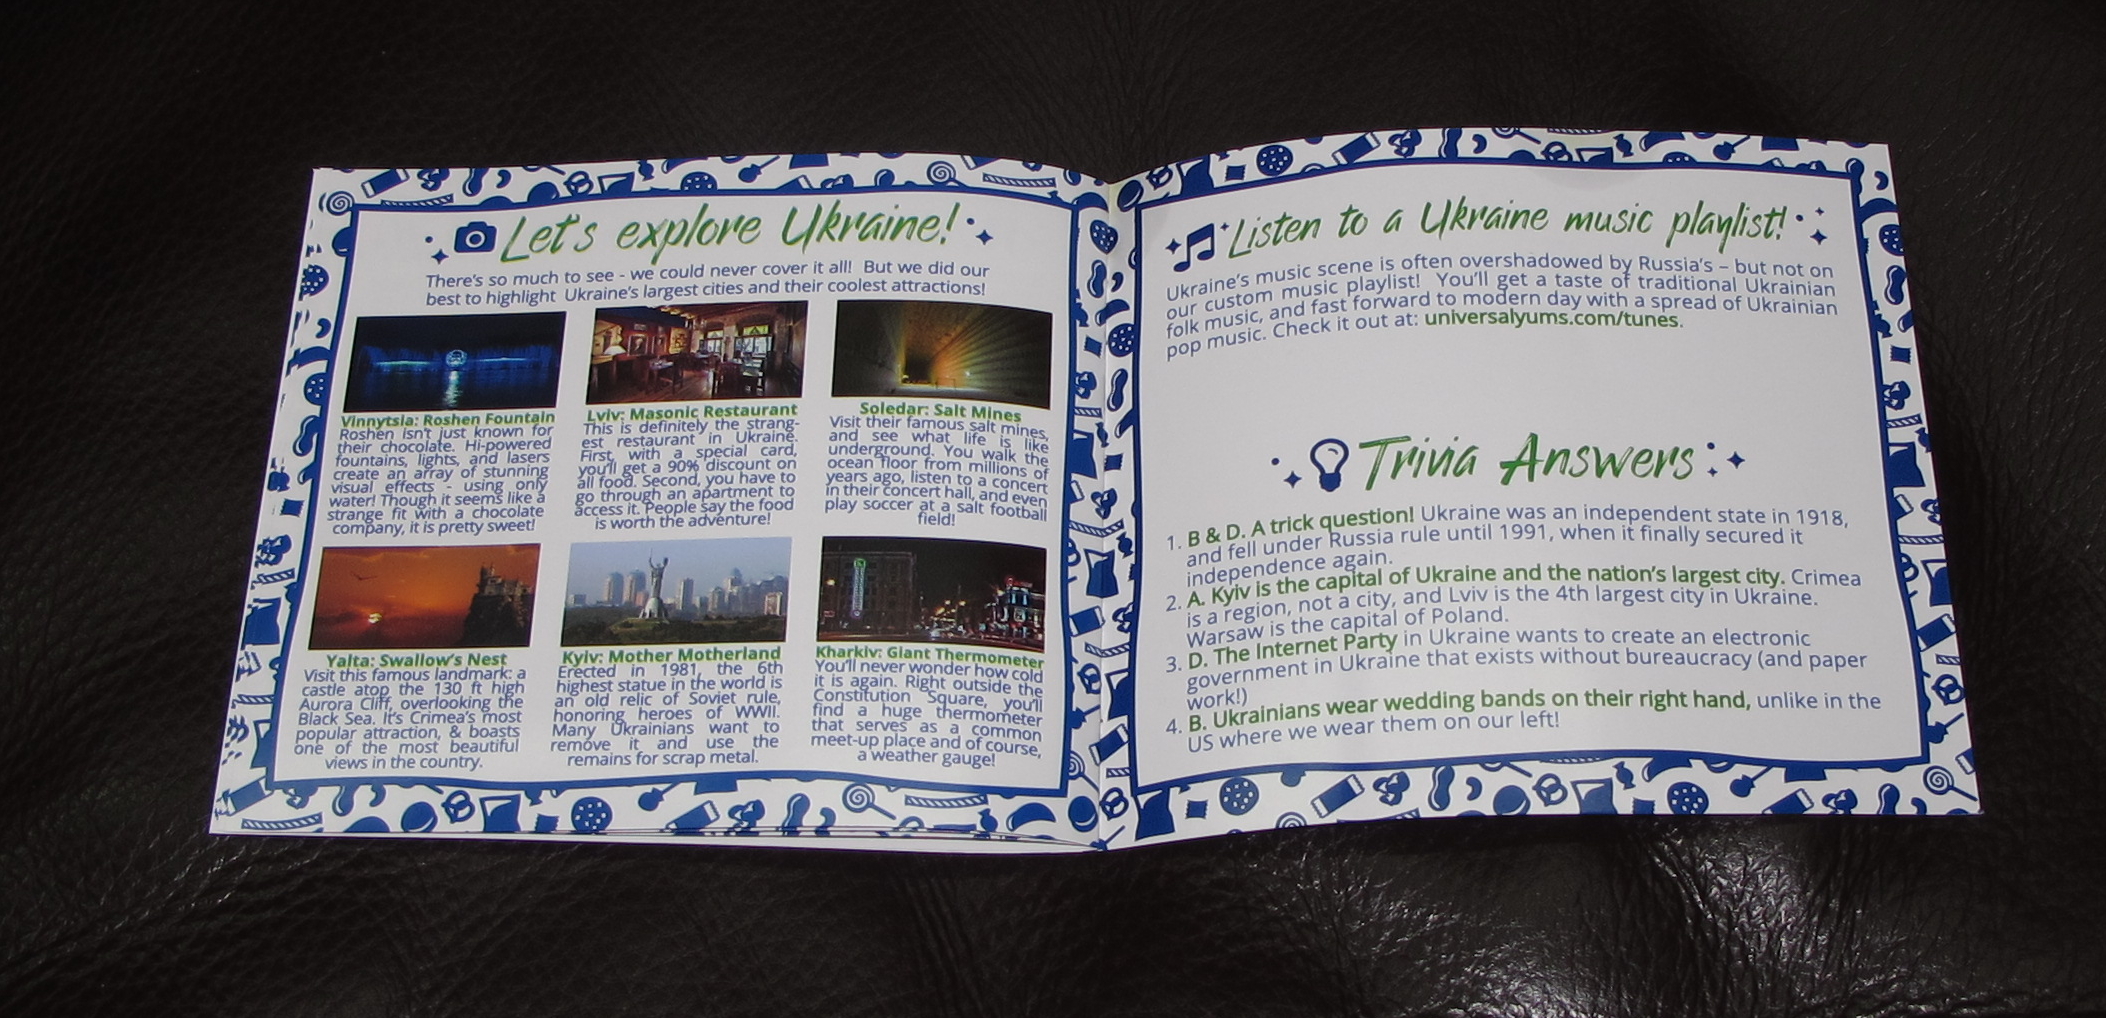 Let's explore Ukraine!
There's so much to see - we could never cover it all! But we did our
best to highlight Ukraine's largest cities and their coolest attractions!
Vinnytsia: Roshen Fountain
Roshen isn't just known for
their chocolate. Hi-powered
fountains, lights, and lasers
create an array of stunning
visual effects - using only
water! Though it seems like a
strange fit with a chocolate
company, it is pretty sweet!
Lviv: Masonic Restaurant
This is definitely the strang-
est restaurant in Ukraine.
First, with a special card,
you'll get a 90% discount on
all food. Second, you have to
go through an apartment to
access it. People say the food
is worth the adventure!
Soledar: Salt Mines
Visit their famous salt mines,
and see what life is like
underground. You walk the
ocean floor from millions of
years ago, listen to a concert
in their concert hall, and even
play soccer at a salt football
field!
Yalta: Swallow's Nest
Visit this famous landmark: a
castle atop the 130 ft high
Aurora Cliff, overlooking the
Black Sea. It's Crimea's most
popular attraction, & boasts
one of the most beautiful
views in the country.
Kyiv: Mother Motherland
Erected in 1981, the 6th
highest statue in the world is
an old relic of Soviet rule,
honoring heroes of WWII.
Many Ukrainians want to
remove it and use the
remains for scrap metal.
Kharkiv: Giant Thermometer
You'll never wonder how cold
it is again. Right outside the
Constitution Square, you'll
find a huge thermometer
that serves as a common
meet-up place and of course,
a weather gauge!
Listen to a Ukraine music playlist!
Ukraine's music scene is often overshadowed by Russia's – but not on
our custom music playlist! You'll get a taste of traditional Ukrainian
folk music, and fast forward to modern day with a spread of Ukrainian
pop music. Check it out at: universalyums.com/tunes.
Trivia Answers
1. B & D. A trick question! Ukraine was an independent state in 1918,
and fell under Russia rule until 1991, when it finally secured it
independence again.
2. A. Kyiv is the capital of Ukraine and the nation's largest city. Crimea
is a region, not a city, and Lviv is the 4th largest city in Ukraine.
Warsaw is the capital of Poland.
3. D. The Internet Party in Ukraine wants to create an electronic
government in Ukraine that exists without bureaucracy (and paper
work!)
4. B. Ukrainians wear wedding bands on their right hand, unlike in the
US where we wear them on our left!